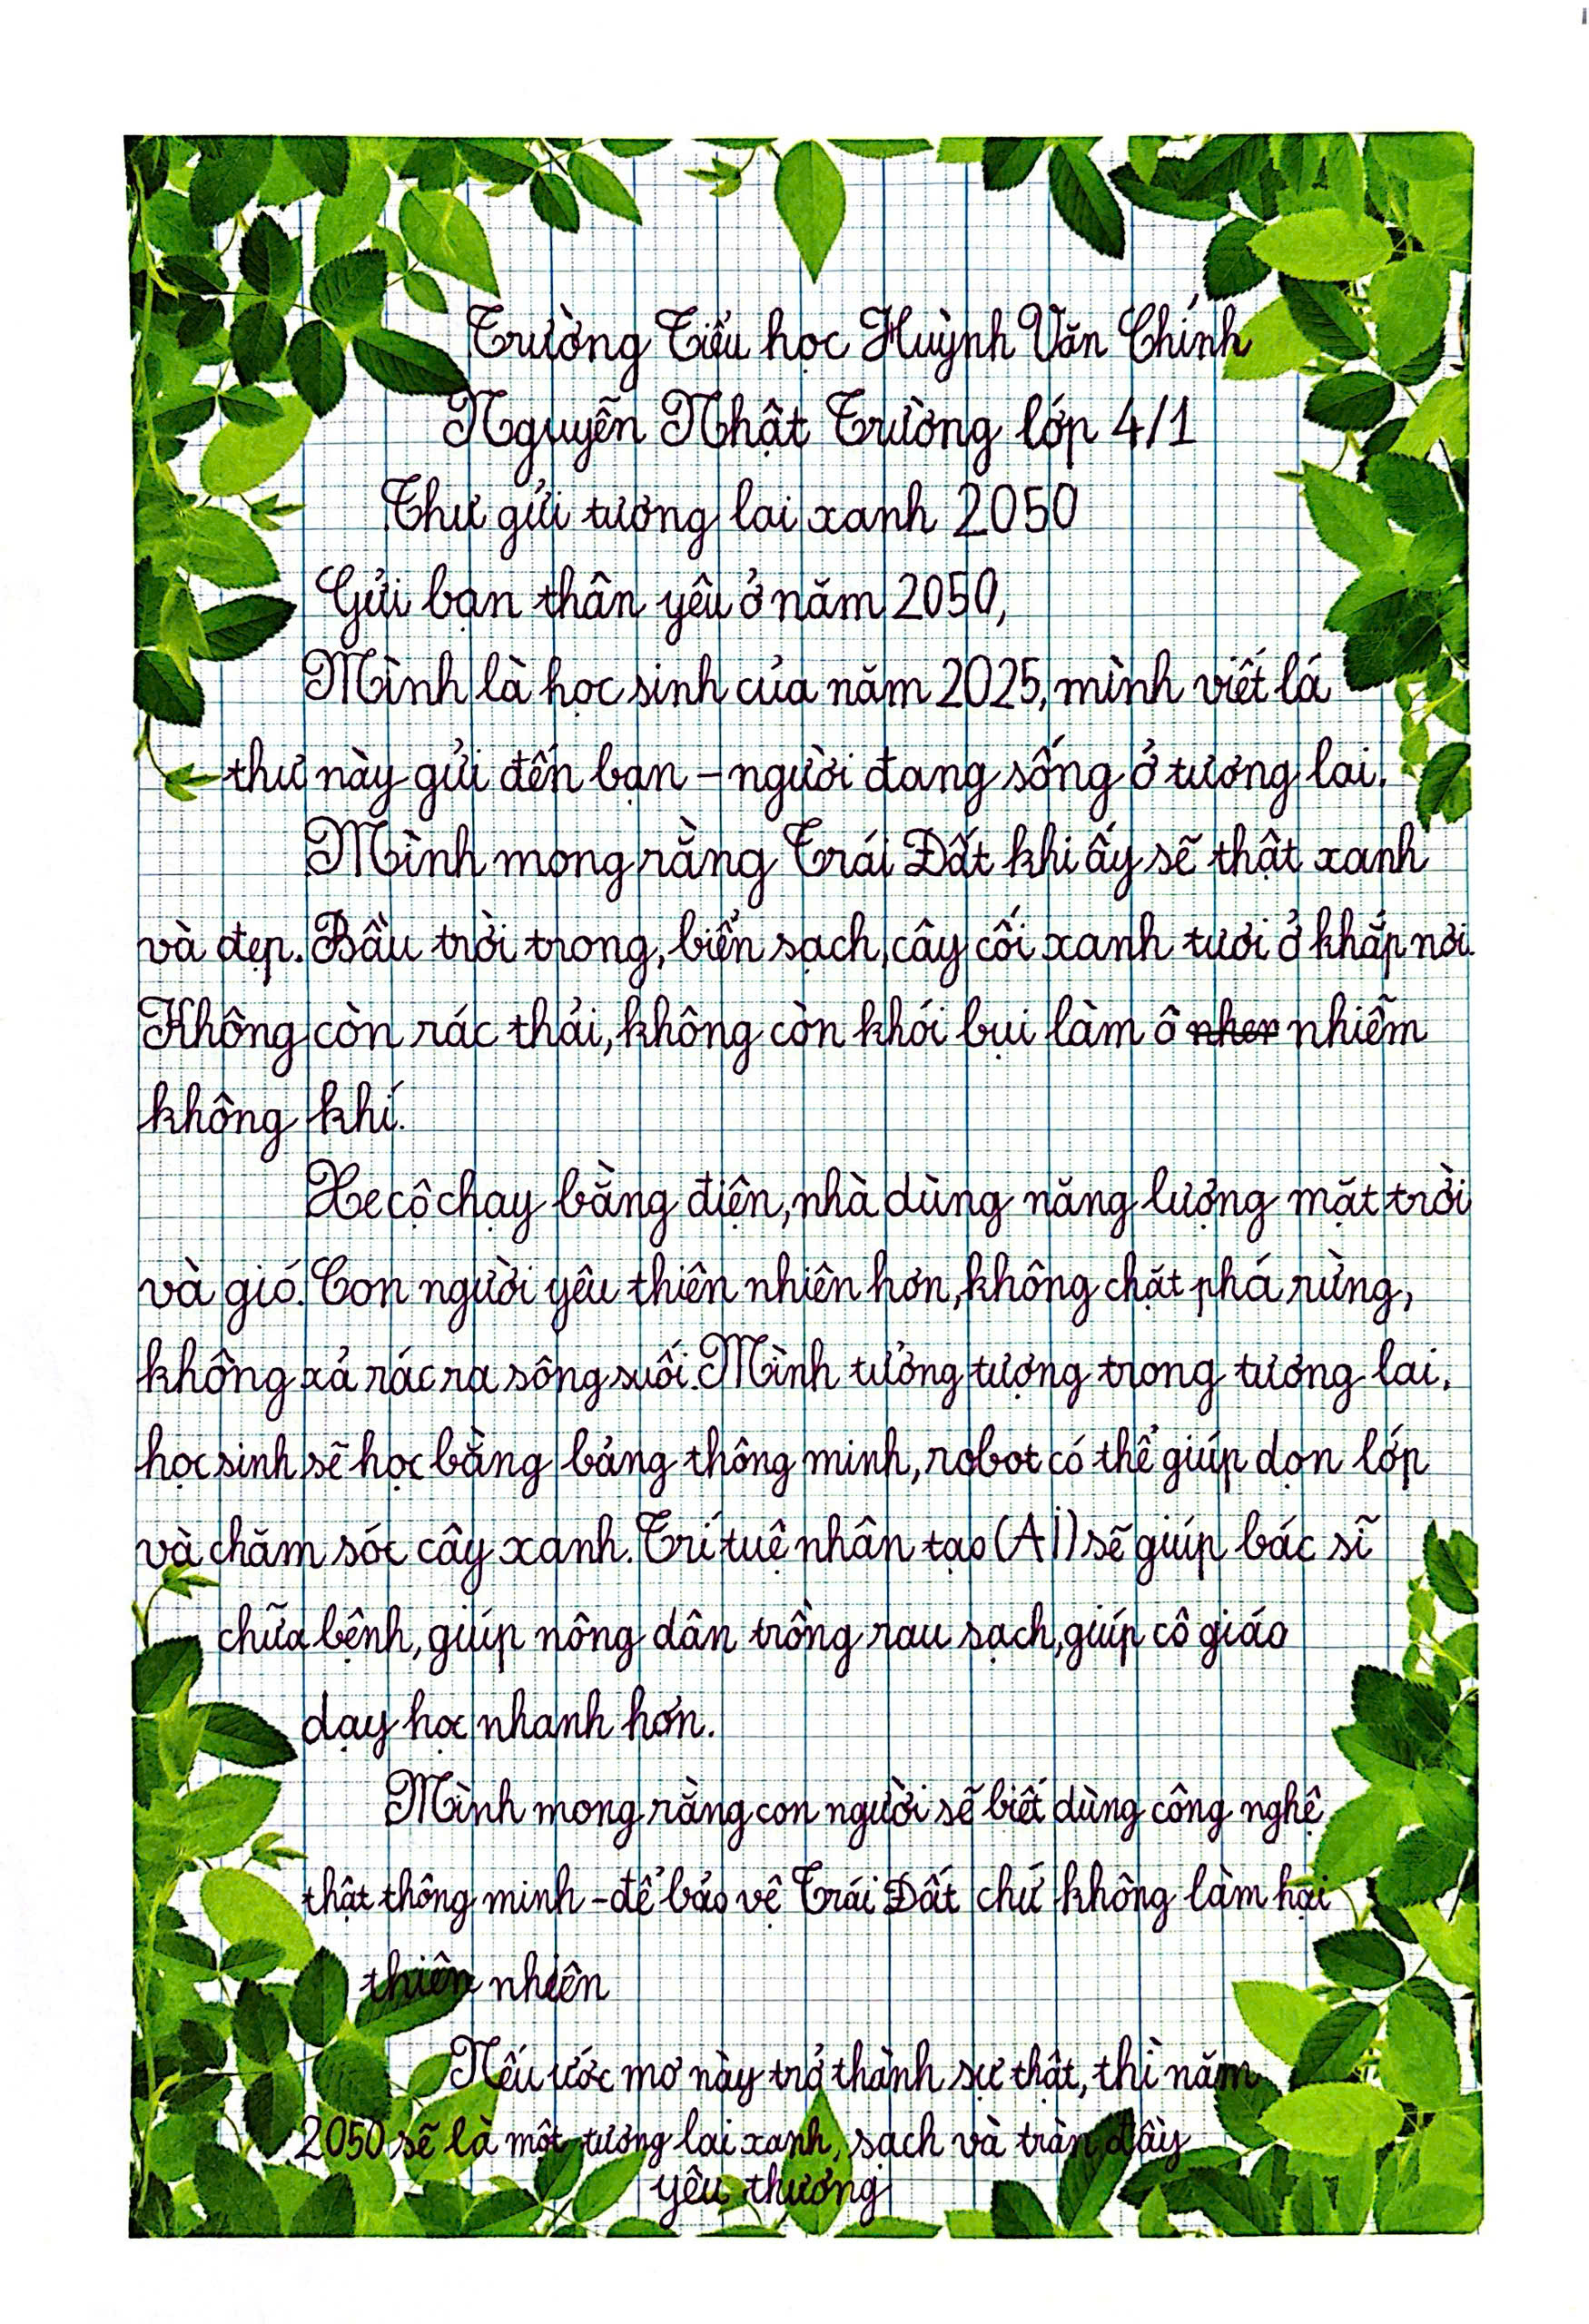 Trường Tiểu học Huỳnh Văn Chính
Nguyễn Nhật Trường lớp 4/1
Thư gửi tương lai xanh 2050
Gửi bạn thân yêu ở năm 2050,
Mình là học sinh của năm 2025, mình viết lá
thư này gửi đến bạn – người đang sống ở tương lai.
Mình mong rằng Trái Đất khi ấy sẽ thật xanh
và đẹp. Bầu trời trong, biển sạch, cây cối xanh tươi ở khắp nơi.
Không còn rác thải, không còn khói bụi làm ô nhiễm
không khí.
Xe cộ chạy bằng điện, nhà dùng năng lượng mặt trời
và gió. Con người yêu thiên nhiên hơn, không chặt phá rừng,
không xả rác ra sông suối. Mình tưởng tượng trong tương lai,
học sinh sẽ học bằng bảng thông minh, robot có thể giúp dọn lớp
và chăm sóc cây xanh. Trí tuệ nhân tạo (AI) sẽ giúp bác sĩ
chữa bệnh, giúp nông dân trồng rau sạch, giúp cô giáo
dạy học nhanh hơn.
Mình mong rằng con người sẽ biết dùng công nghệ
thật thông minh – để bảo vệ Trái Đất chứ không làm hại
thiên nhiên
Nếu ước mơ này trở thành sự thật, thì năm
2050 sẽ là một tương lai xanh, sạch và tràn đầy
yêu thương